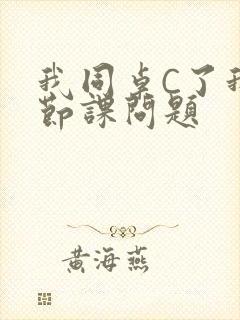 我同桌C了我
節課問題
黄海燕